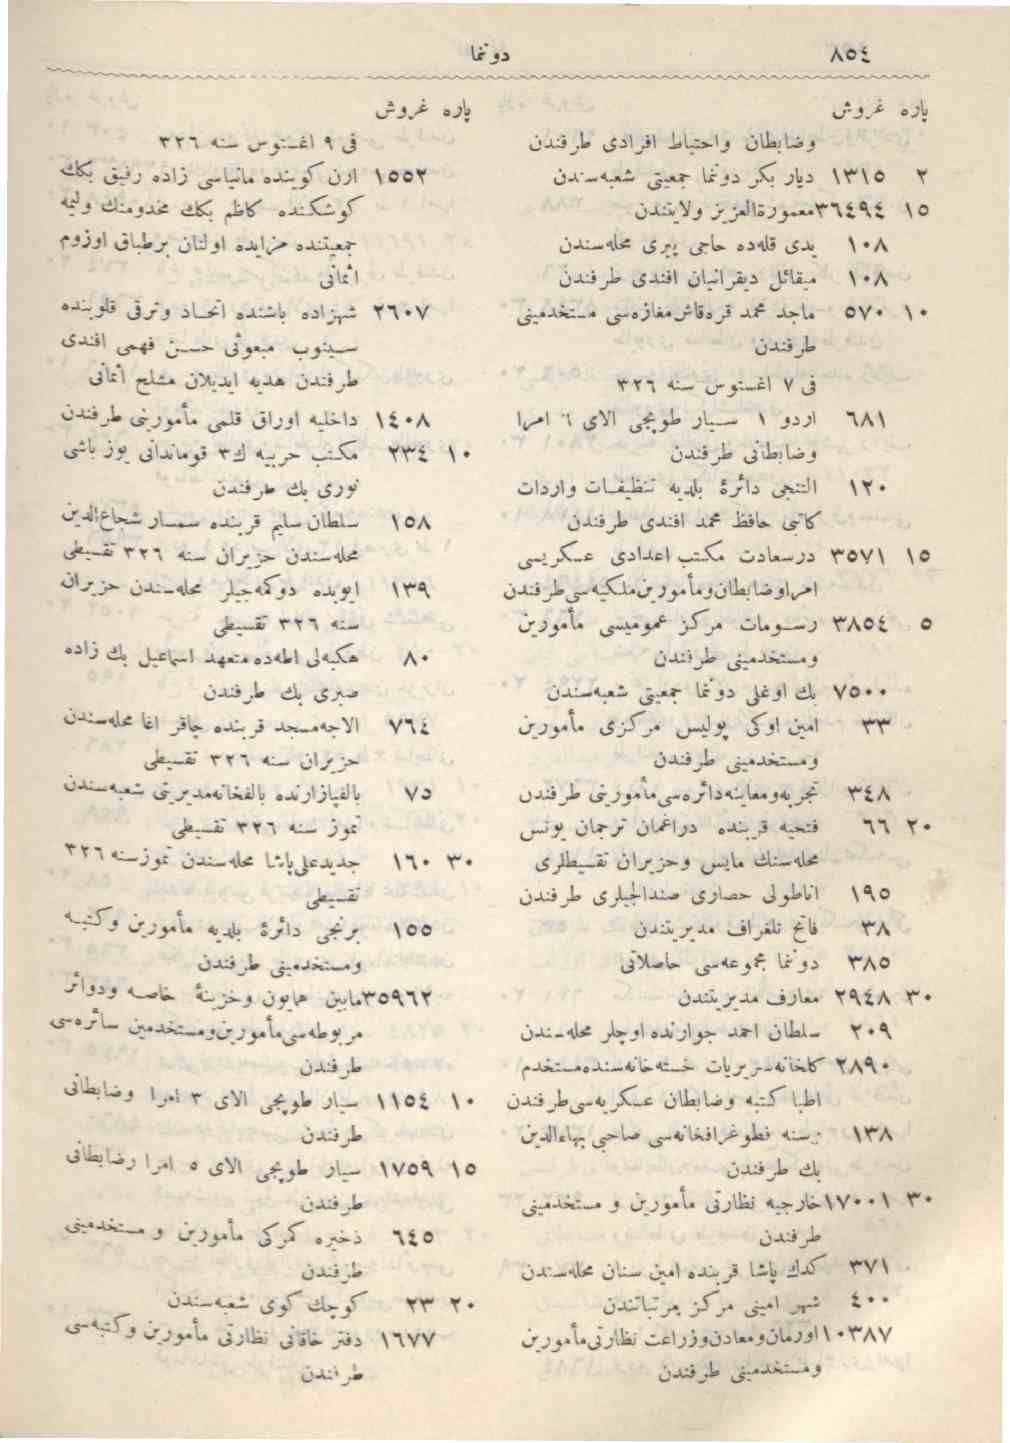 ٨٥٤
دوننما
پاره غروش
وضابطان واحتياط افرادى طرفندن
٢ ١٣١٥ ديار بكر دوننما جمعيتى شعبه‌سندن
١٥ ٣٦٤٩٤ معمورة‌العزيز ولايتندن
١٠٨ يدى قله‌ده حاجى پيرى محله‌سندن
١٠٨ ميقائل ديقرانيان افندى طرفندن
١٠ ٥٧٠ ماجد محمد قره‌قاش مغازه‌سى مستخدمينى
طرفندن
فى ٧ اغستوس سنه ٣٢٦
٦٨١ اردو ١ سيار طوپجى الاى ٦ امرا
وضابطانى طرفندن
١٢٠ التنجى دائرۀ بلديه تنظيفات واردات
كاتبى حافظ محمد افندى طرفندن
١٥ ٣٥٧١ درسعادت مكتب اعدادى عسكريسى
امراوضابطان‌ومأمورين‌ملكيه‌سى طرفندن
٥ ٣٨٥٤ رسومات مركز عموميسى مأمورين
ومستخدمينى طرفندن
٧٥٠٠ بك اوغلى دوننما جمعيتى شعبه‌سندن
٣٣ امين اوكى پوليس مركزى مأمورين
ومستخدمينى طرفندن
٣٤٨ تجربه‌ومعاينه‌دائره‌سى‌مأمورينى طرفندن
٢٠ ٦٦ فتحيه قربنده دراغمان ترجمان يونس
محله‌سنك مايس وحزيران تقسيطلرى
١٩٥ اناطولى حصارى صندالجيلرى طرفندن
٣٨ فاتح تلغراف مديريتندن
٣٨٥ دوننما مجموعه‌سى حاصلاتى
٣٠ ٢٩٤٨ معارف مديريتندن
٢٠٩ سلطان احمد جوارنده اوچلر محله‌سندن
٢٨٩٠ كلخانه‌سريريات خسته‌خانه‌سنده‌مستخدم
اطبا كتبه وضابطان عسكريه‌سى‌طرفندن
١٣٨ رسنه فطوغرافخانه‌سى صاحبى بهاءالدين
بك طرفندن
٣٠ ١٧٠٠١ خارجيه نظارتى مأمورين و مستخدمينى
طرفندن
٣٧١ كدك پاشا قربنده امين سنان محله‌سندن
٤٠٠ شهر امينى مركز مرتباتندن
١٠٣٨٧ اورمان‌ومعادن‌وزراعت نظارتى‌مأمورين
ومستخدمينى طرفندن
پاره غروش
فى ٩ اغستوس سنه ٣٢٦
١٥٥٢ ارن كوينده مانياسى زاده رفيق بكك
كوشكنده كاظم بكك مخدومنك وليمه
جمعيتنده مزايده اولنان برطباق اوزوم
اثمانى
٢٦٠٧ شهزاده باشنده اتحاد وترقى قلوبنده
سينوب مبعوثى حسن فهمى افندى
طرفندن هديه ايديلان مشلح اثمانى
١٤٠٨ داخليه اوراق قلمى مأمورينى طرفندن
١٠ ٢٣٤ مكتب حربيه ك٣ قوماندانى يوز باشى
نورى بك طرفندن
١٥٨ سلطان سليم قربنده سمسار شجاع‌الدين
محله‌سندن حزيران سنه ٣٢٦ تقسيطى
١٣٩ ايوبده دوكمه‌جيلر محله‌سندن حزيران
سنه ٣٢٦ تقسيطى
٨٠ هكبه‌لى اطه‌ده متعهد اسماعيل بك زاده
صبرى بك طرفندن
٧٦٤ الاجه‌مسجد قربنده چاقر اغا محله‌سندن
حزيران سنه ٣٢٦ تقسيطى
٧٥ بالقپازارنده بالقخانه‌مديريتى شعبه‌سندن
تموز سنه ٣٢٦ تقسيطى
٣٠ ١٦٠ جديدعلى‌پاشا محله‌سندن تموزسنه ٣٢٦
تقسيطى
١٥٥ برنجى دائرۀ بلديه مأمورين وكتبه
ومستخدمينى طرفندن
٣٥٩٦٢ مابين همايون وخزينۀ خاصه ودوائر
مربوطه‌سى‌مأمورين‌ومستخدمين سائره‌سى
طرفندن
١٠ ١١٥٤ سيار طوپجى الاى ٣ امرا وضابطانى
طرفندن
١٥ ١٧٥٩ سيار طوپجى الاى ٥ امرا وضابطانى
طرفندن
٦٤٥ ذخيره كمركى مأمورين و مستخدمينى
طرفندن
٢٠ ٢٣ كوچك كوى شعبه‌سندن
١٦٧٧ دفتر خاقانى نظارتى مأمورين وكتبه‌سى
طرفندن